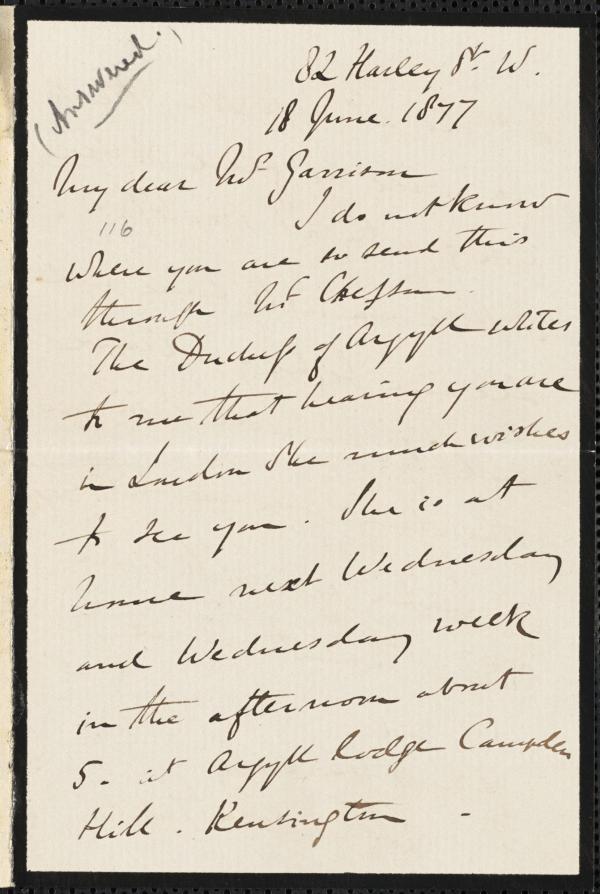 (Answered.)
82 Harley St. W.
18 June. 1877
My dear Mr Garrison
I do not know
116
where you are so send this
through Mr Chesson.
The Duchess of Argyll writes
to me that hearing you are
in London She much wishes
to see you. She is at
home next Wednesday
and Wednesday week
in the afternoon about
5. at Argyll Lodge Campden
Hill. Kensington -